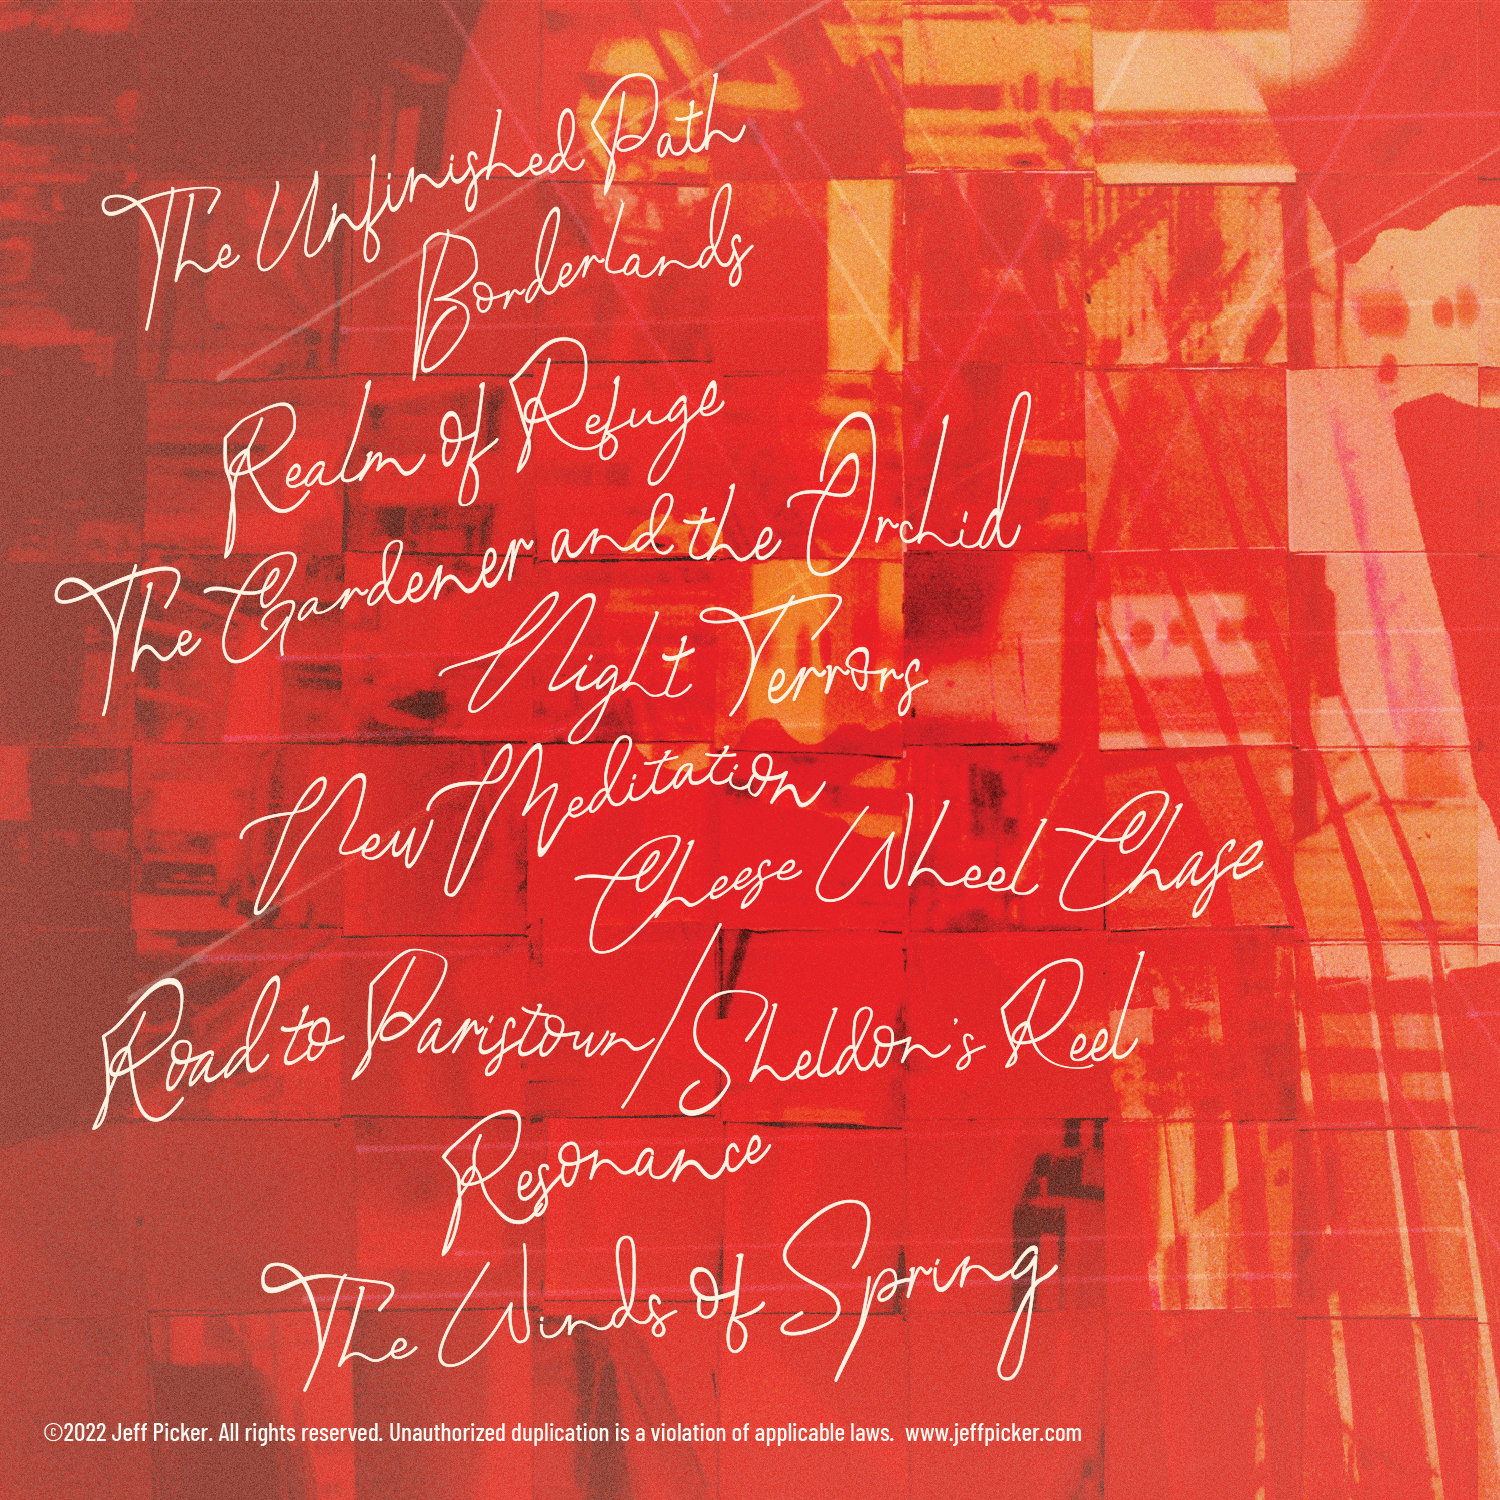 The Unfinished Path
Borderlands
Realm of Refuge
The Gardener and the Orchid
Night Terrors
New Meditation
Cheese Wheel Chase
Road to Paristown/Sheldon's Reel
Resonance
The Winds of Spring
©2022 Jeff Picker. All rights reserved. Unauthorized duplication is a violation of applicable laws. www.jeffpicker.com